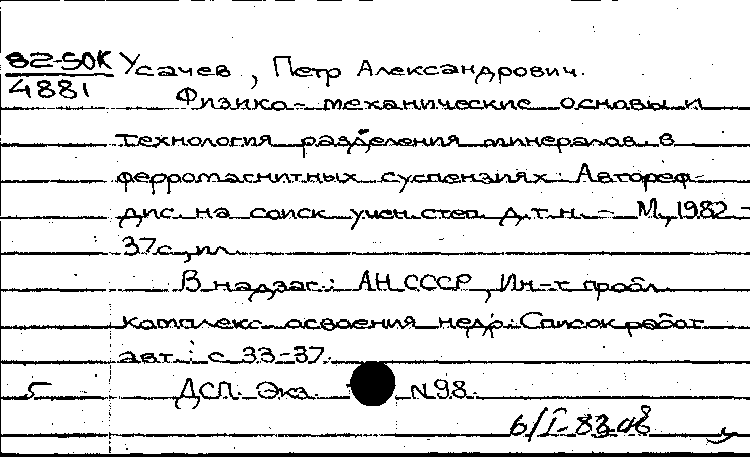 82-5ОК
4881
Усачев, Петр Александрович.
Физико-механические основы и
технология разделения минералов в
ферромагнитных суспензиях: Автореф.
дис. на соиск. учен. степ. д.т.н. - М., 1982 -
37с., ил.
В надзаг.: АН СССР, Ин-т пробл.
комплекс. освоения недр. Список работ
авт.: с. 33-37.
5 ДСП. Экз. N98.
6/I-83